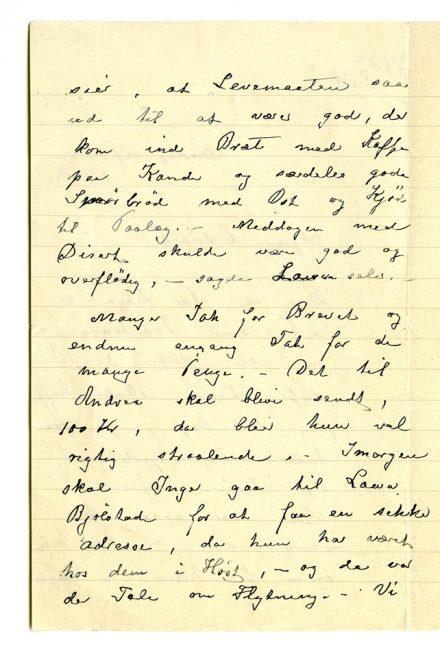 sier, at Levemaaten saa
ud til at være god, der
kom ind Bræt med Kaffe
paa Kande og særdeles gode
Smörbröd med Ost og Kjöd
til Paalæg. - Middagen med
Disert skulde være god og
overflödig, - sagde selv. -
Mange Tak for Brevet og
endnu engang Tak for de
mange Penge. - Det til
Andrea skal blive sendt,
100 Kr, da blir hun vel
rigtig straalende. - Imorgen
skal Inga gaa til Lawa
Björstad for at faa en sikke
adresse, da hun har været
hos dem i Höst, - og da var
der Tale om Flytning. - Vi